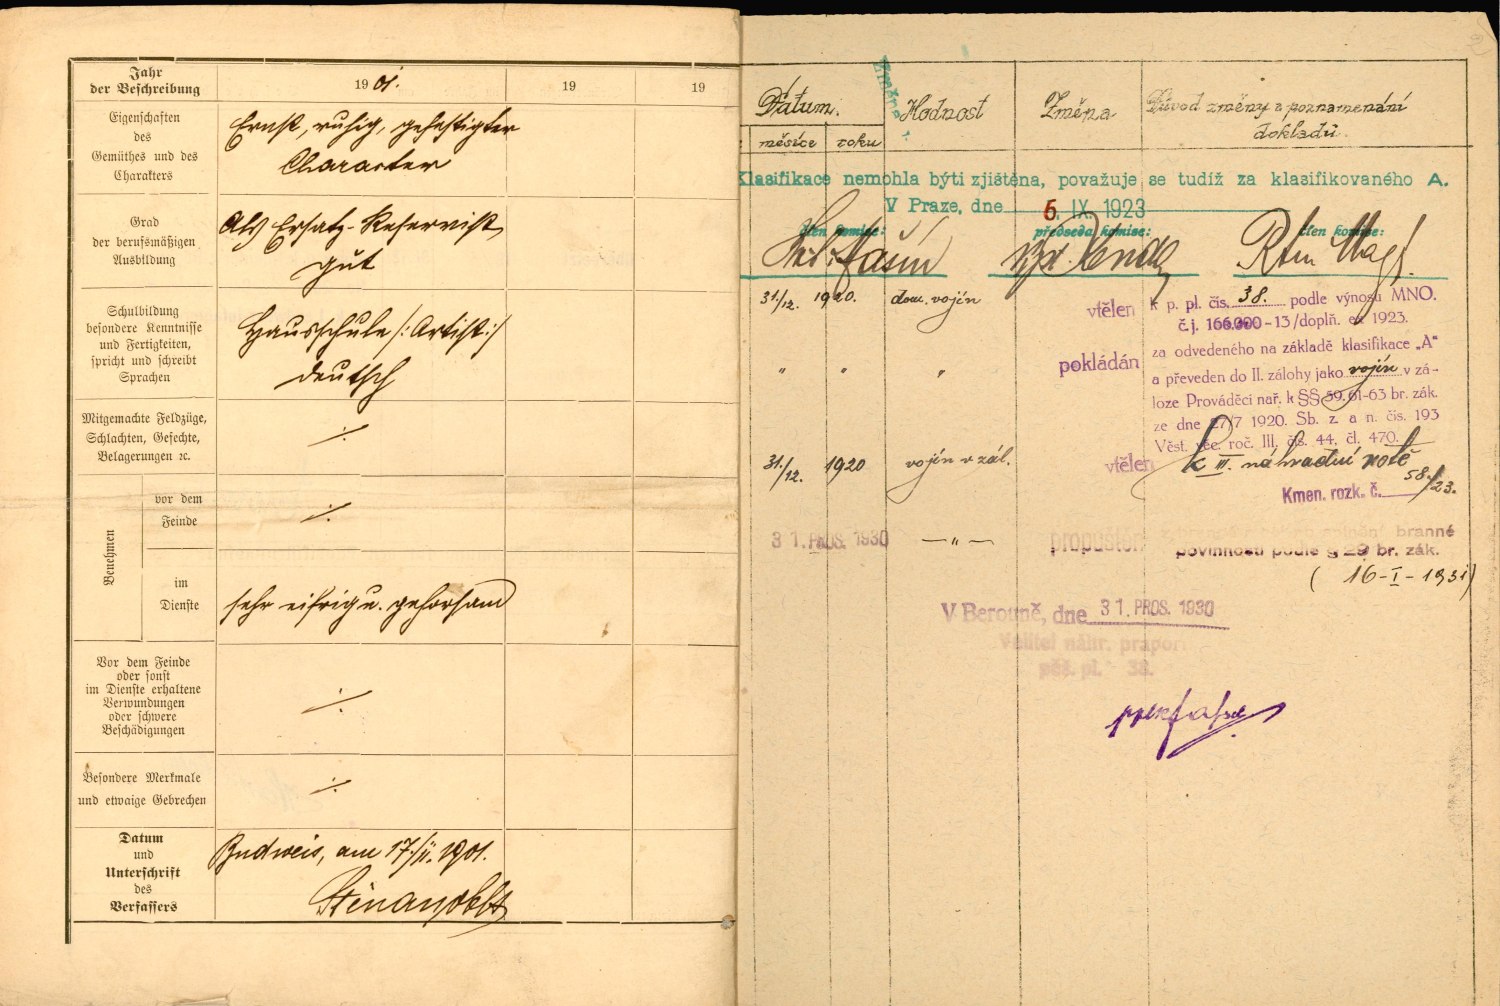 Jahr
der Beschreibung
1901.
19
19
Eigenschaften
des
Gemüthes und des
Charakters
Ernst, ruhig, gefestigter
Character
Grad
der berufsmäßigen
Ausbildung
Als Ersatz-Reservist
gut
Schulbildung
besondere Kenntnisse
und Fertigkeiten,
spricht und schreibt
Sprachen
Hausschule /:Artist:/
deutsch
Mitgemachte Feldzüge,
Schlachten, Gefechte,
Belagerungen ꝛc.
·/·
Benehmen
vor dem
Feinde
·/·
im
Dienste
sehr eifrig u. gehorsam
Vor dem Feinde
oder sonst
im Dienste erhaltene
Verwundungen
oder schwere
Beschädigungen
·/·
Besondere Merkmale
und etwaige Gebrechen
·/·
Datum
und
Unterschrift
des
Verfassers
Budweis, am 17/II. 1901.
Datum.
měsíce
roku
Změna
Hodnost
Změna
Důvod změny z poznamenání
dokladů.
Klasifikace nemohla býti zjištěna, považuje se tudíž za klasifikovaného A.
V Praze, dne 6. IX. 1923
člen komise:
předseda komise:
člen komise:
31/12. 1920. dom. vojín
vtělen k p. pl. čís. 38. podle výnosu MNO.
č.j. 166.000-13/doplň. ex 1923.
" " "
pokládán za odvedeného na základě klasifikace „A"
a převeden do II. zálohy jako vojín v zá-
loze Prováděcí nař. k §§ 59, 61-63 br. zák.
ze dne 27/7 1920. Sb. z. a n. čís. 193
Věst. věc. roč. III, čís. 44, čl. 470.
31/12. 1920 vojín v zál.
vtělen k III. náhradní rotě
Kmen. rozk. č. 58/23.
31. PROS. 1930 — " —
propuštěn branné
povinnosti podle § 29 br. zák.
(16-I-1931)
V Berouně, dne 31. PROS. 1930
Velitel náhr. prapor.
pěš. pl. 38.